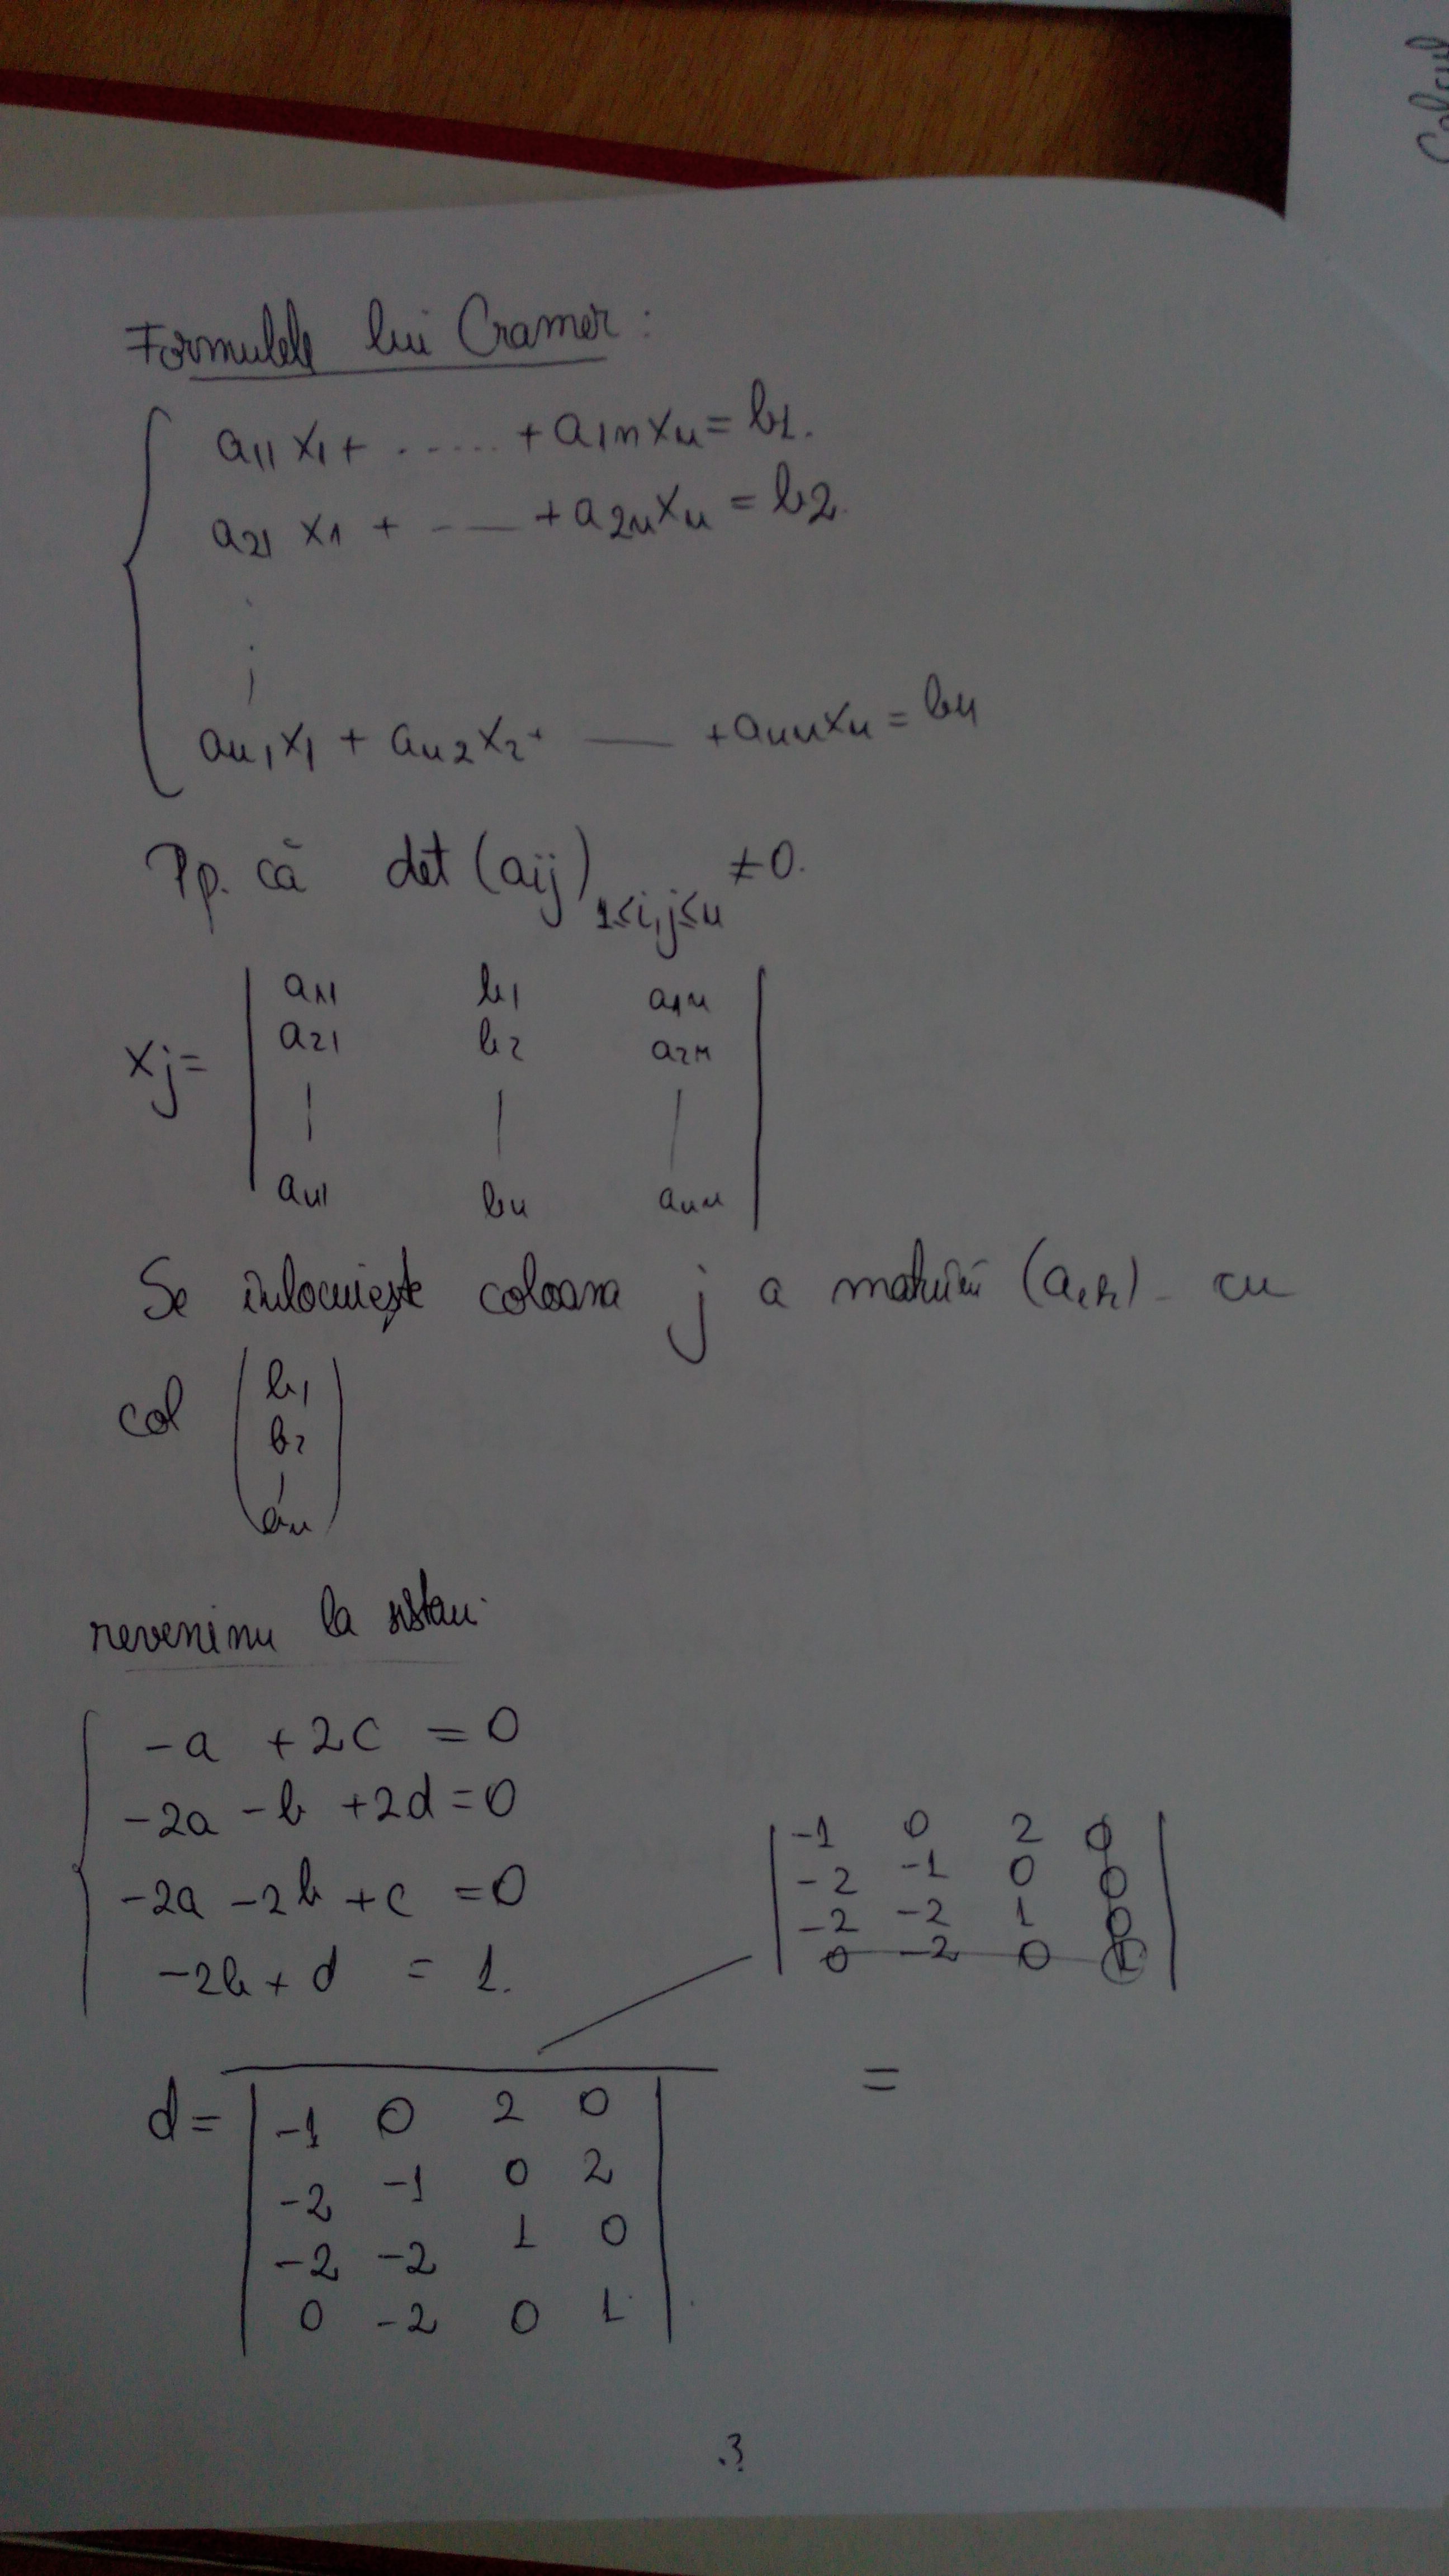 Calcul
Formulele lui Cramer:
a11 x1 + ...... + a1n xn = b1.
a21 x1 + -— + a2n xn = b2.
an1 x1 + an2 x2 + — + ann xn = bn
Pp. că det (aij) 1≤i,j≤n ≠ 0.
xj =
a11 b1 a1n
a21 b2 a2n
| | |
an1 bn ann
Se înlocuiește coloana j a matricii cu
col
b1
b2
revenim la sistem.
-a + 2c = 0
-2a - b + 2d = 0
-2a - 2b + c = 0
-2b + d = 1.
-1 0 2 0
-2 -1 0 0
-2 -2 1 0
0 -2 0 1
d = =
-1 0 2 0
-2 -1 0 2
-2 -2 1 0
0 -2 0 1
.3